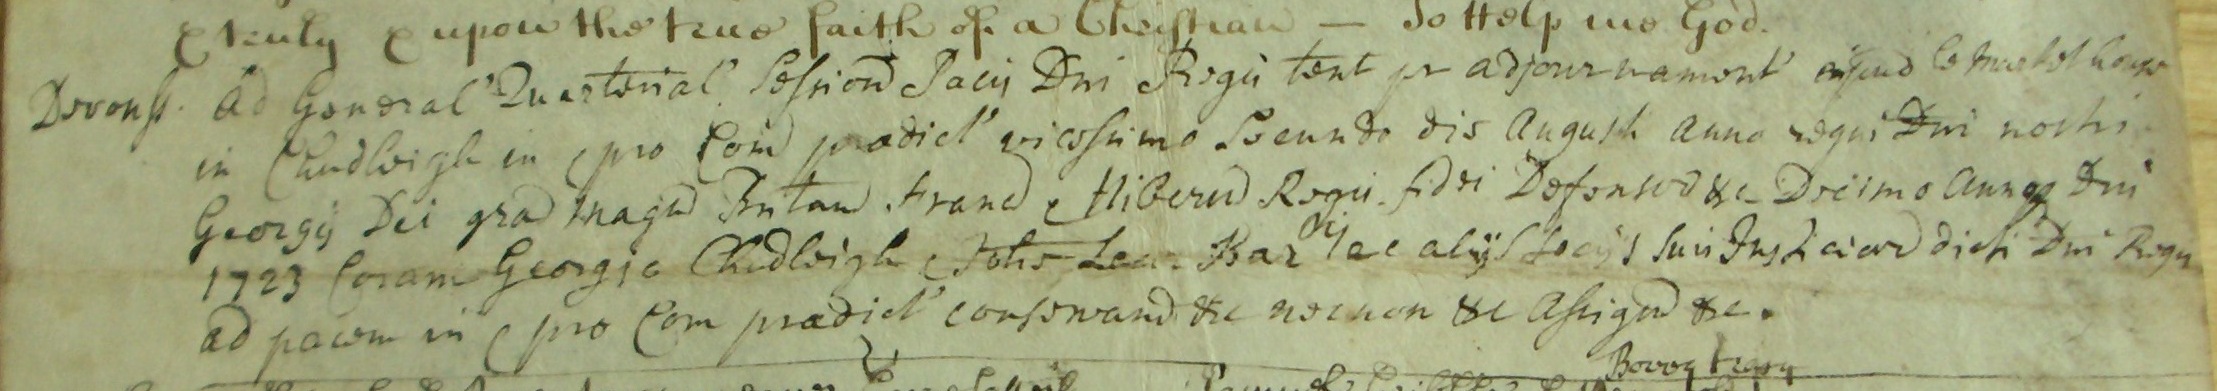 & truly & upon the true faith of a Christian — So Help me God.
Devonss. Ad General' Quarterial' Session Pacis Dni Regis tent pr adjournament' apud le Market house
in Chudleigh in & pro Com prædict' vicessimo Secundo die Augusti Anno regni Dni nostri
Georgij Dei gra Magn Britan Franc & Hibern Regis fidei Defensor &c Decimo Annoq Dni
1723 Coram Georgio Chudleigh & Bar ac alijs Socijs suis Justiciar dicti Dni Regis
ad pacem in & pro Com prædict' conservand &c necnon &c Assignd &c.
Bovey tracy